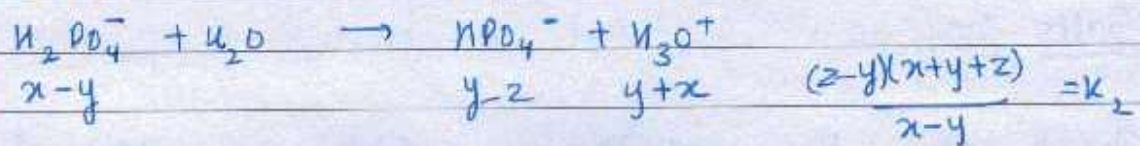 H₂PO₄⁻ + H₂O → HPO₄⁻ + H₃O⁺
x-y y-z y+x (z-y)(x+y+z)/x-y = K₂